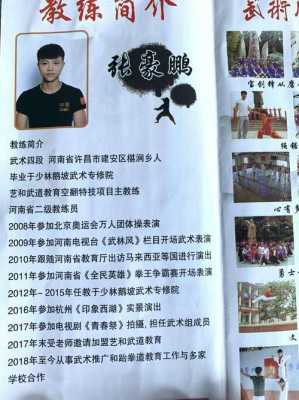 教练简介
武術
张豪鹏
教练简介
武术四段 河南省许昌市建安区椹涧乡人
毕业于少林鹅坡武术专修院
艺和武道教育空翻特技项目主教练
河南省二级教练员
2008年参加北京奥运会万人团体操表演
2009年参加河南电视台《武林风》栏目开场武术表演
2010年跟随河南省教育厅出访马来西亚等国进行演出
2011年参加河南省《全民英雄》拳王争霸赛开场表演
2012年-2015年任教于少林鹅坡武术专修院
2016年参加杭州《印象西湖》实景演出
2017年参加电视剧《青春祭》拍摄,担任武术组成员
2017年末受老师邀请加盟艺和武道教育
2018年至今从事武术推广和跆拳道教育工作与多家
学校合作
宝剑锋从磨
心有
勇士
文